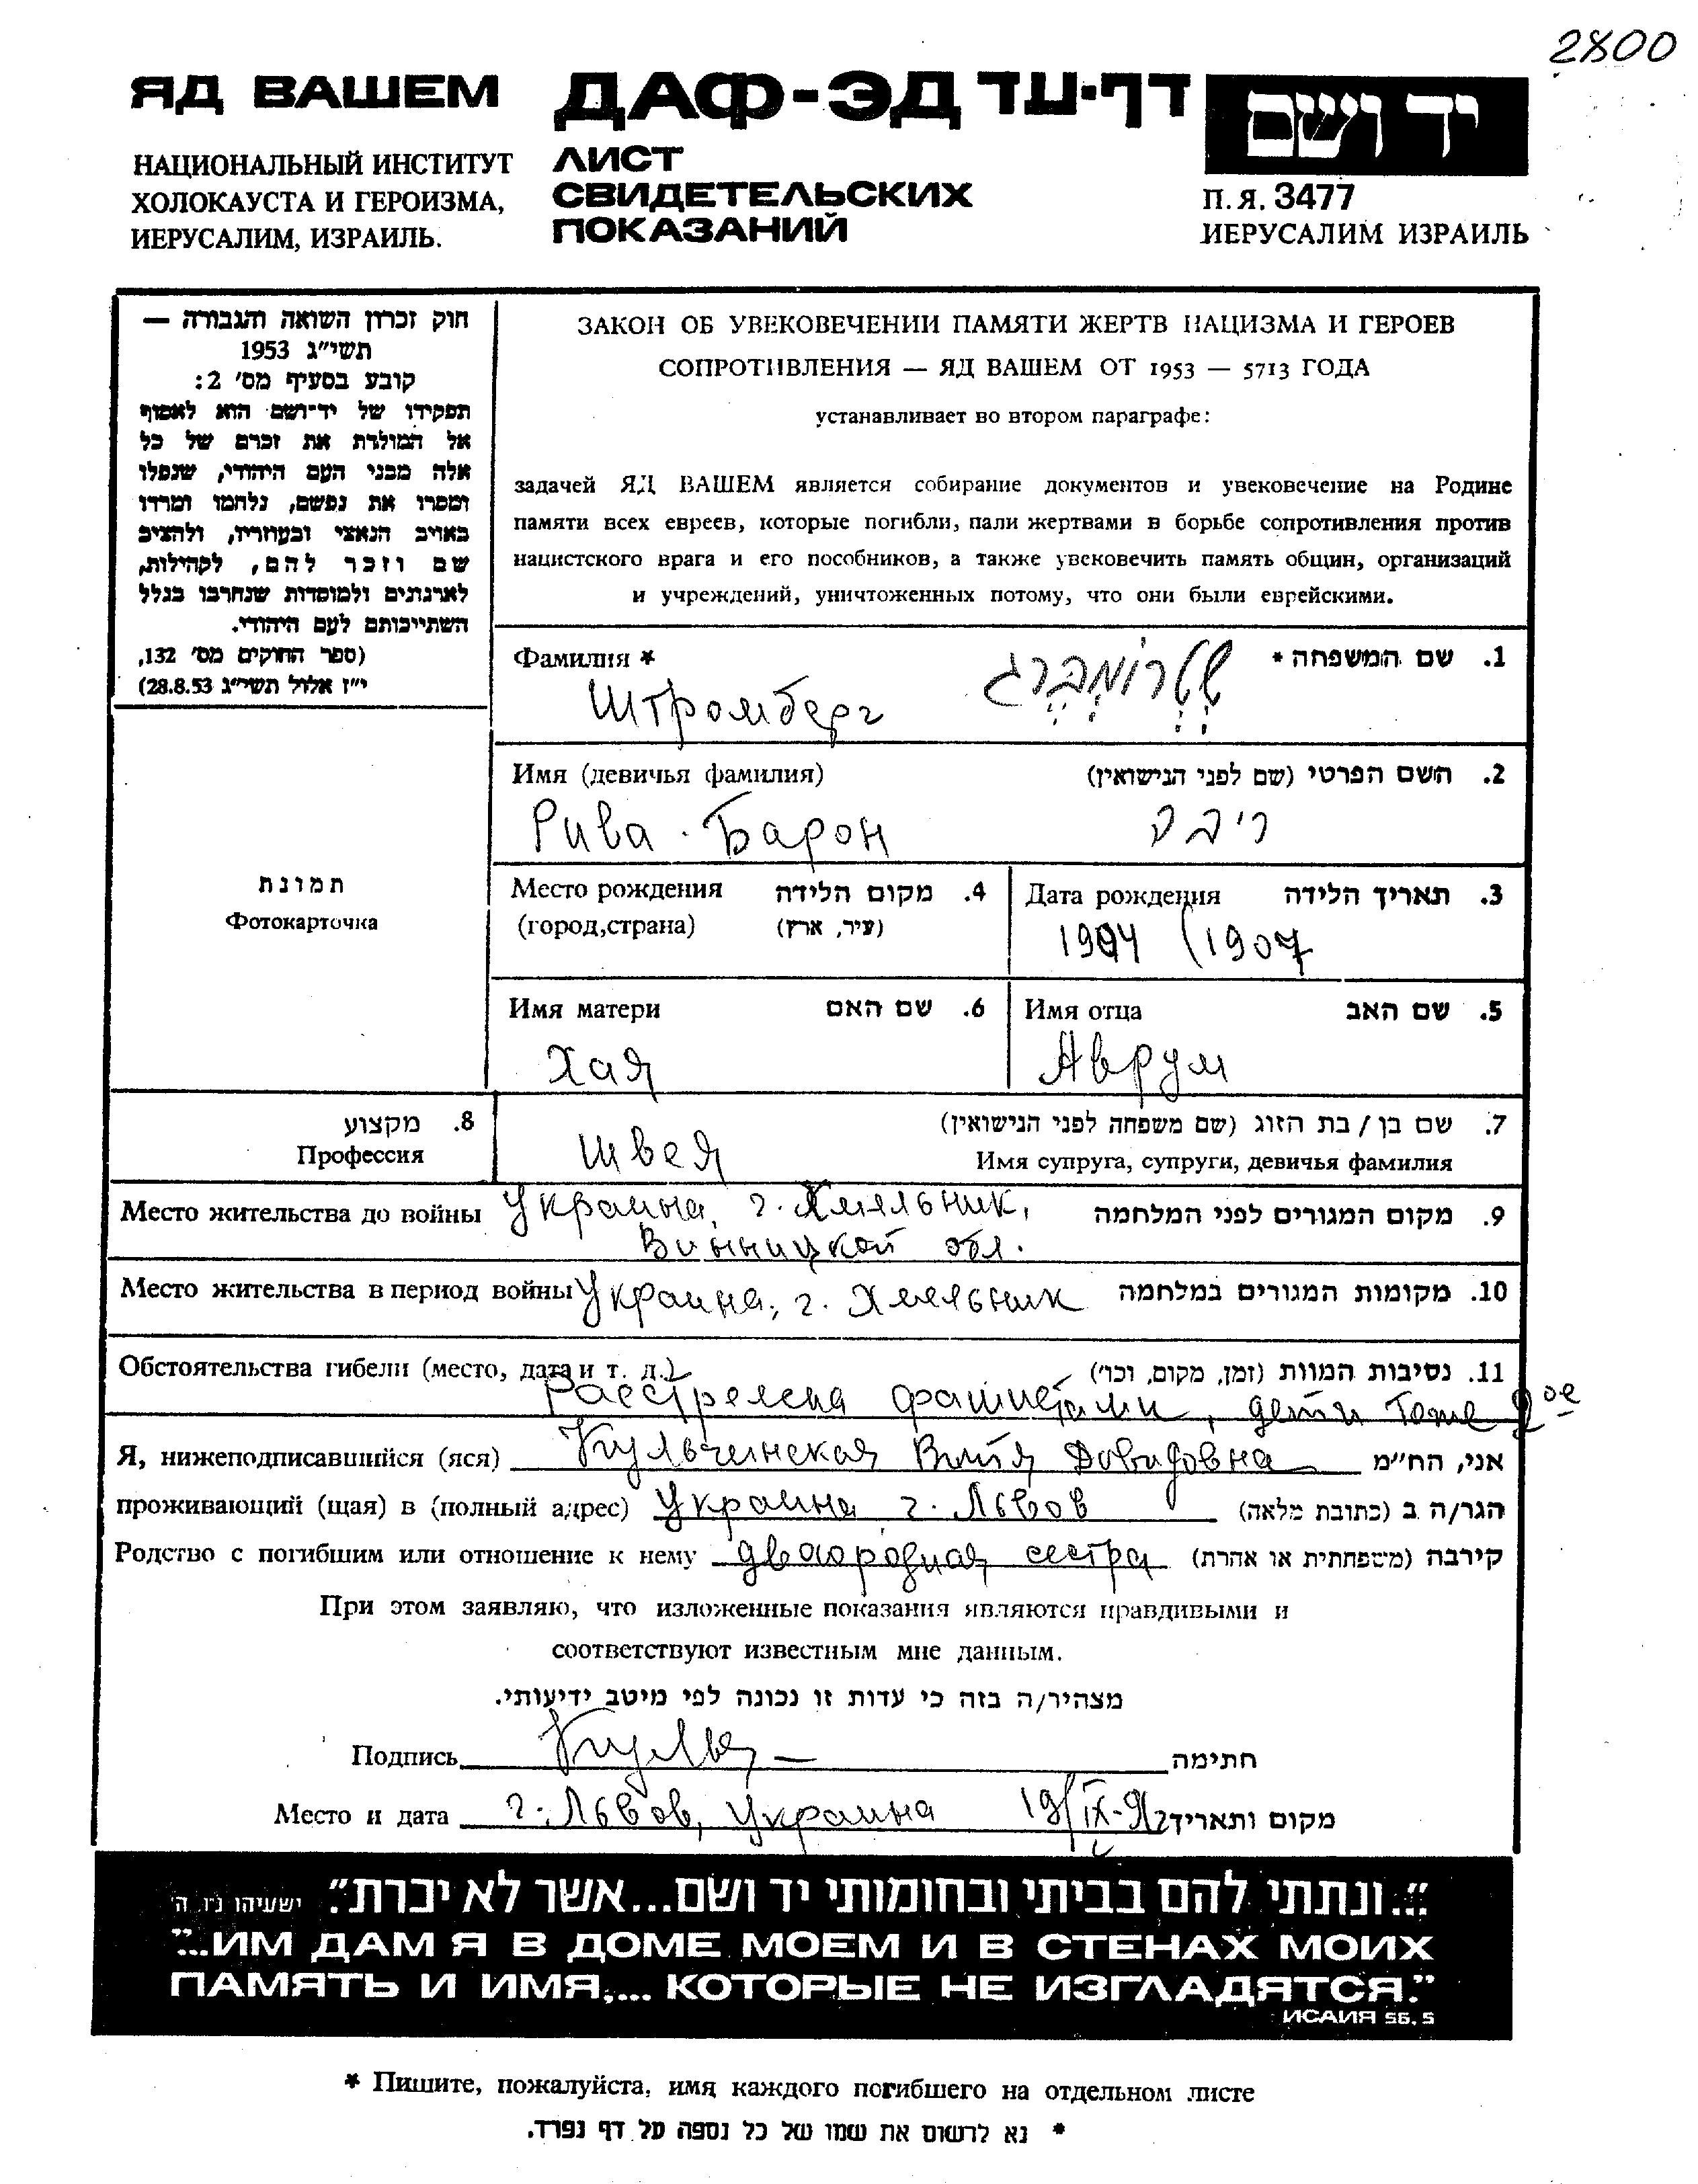 2800
ЯД ВАШЕМ
НАЦИОНАЛЬНЫЙ ИНСТИТУТ
ХОЛОКАУСТА И ГЕРОИЗМА,
ИЕРУСАЛИМ, ИЗРАИЛЬ.
ДАФ-ЭД דף-עד
ЛИСТ
СВИДЕТЕЛЬСКИХ
ПОКАЗАНИЙ
יד ושם
П.Я. 3477
ИЕРУСАЛИМ ИЗРАИЛЬ
חוק זכרון השואה והגבורה —
תשי״ג 1953
קובע בסעיף מס׳ 2:
תפקידו של יד-ושם הוא לאסוף
אל המולדת את זכרם של כל
אלה מבני העם היהודי, שנפלו
ומסרו את נפשם, נלחמו ומרדו
באויב הנאצי ובעוזריו, ולהציב
שם וזכר להם, לקהילות,
לארגונים ולמוסדות שנחרבו בגלל
השתייכותם לעם היהודי.
(ספר החוקים מס׳ 132,
י״ז אלול תשי״ג 28.8.53)
ЗАКОН ОБ УВЕКОВЕЧЕНИИ ПАМЯТИ ЖЕРТВ НАЦИЗМА И ГЕРОЕВ
СОПРОТИВЛЕНИЯ — ЯД ВАШЕМ ОТ 1953 — 5713 ГОДА
устанавливает во втором параграфе:
задачей ЯД ВАШЕМ является собирание документов и увековечение на Родине
памяти всех евреев, которые погибли, пали жертвами в борьбе сопротивления против
нацистского врага и его пособников, а также увековечить память общин, организаций
и учреждений, уничтоженных потому, что они были еврейскими.
Фамилия * 1. שם המשפחה *
Штромберг שטרומברג
Имя (девичья фамилия) 2. השם הפרטי (שם לפני הנישואין)
Рива - Барон ריבה
תמונת
Фотокарточка
Место рождения 4. מקום הלידה
(город,страна) (עיר, ארץ)
Дата рождения 3. תאריך הלידה
1904 (1907
Имя матери 6. שם האם
Хая
Имя отца 5. שם האב
Аврум
8. מקצוע
Профессия
Швея
7. שם בן / בת הזוג (שם משפחה לפני הנישואין)
Имя супруга, супруги, девичья фамилия
Место жительства до войны Украина, г. Хмяльник, 9. מקום המגורים לפני המלחמה
Винницкой обл.
Место жительства в период войны Украина, г. Хмельник 10. מקומות המגורים במלחמה
Обстоятельства гибели (место, дата и т. д.) 11. נסיבות המוות (זמן, מקום, וכו׳)
Расстрелена фашистами, дети тоже 2ое
Я, нижеподписавшийся (яся) Кульчинская Витя Давидовна אני, הח״מ
проживающий (щая) в (полный адрес) Украина г. Львов הגר/ה ב (כתובת מלאה)
Родство с погибшим или отношение к нему двоюродная сестра קירבה (משפחתית או אחרת)
При этом заявляю, что изложенные показания являются правдивыми и
соответствуют известным мне данным.
מצהיר/ה בזה כי עדות זו נכונה לפי מיטב ידיעותי.
Подпись Кульч חתימה
Место и дата г. Львов, Украина 19/IX-91г מקום ותאריך
״...ונתתי להם בביתי ובחומותי יד ושם...אשר לא יכרת״. ישעיהו נ״ו, ה׳
"...ИМ ДАМ Я В ДОМЕ МОЕМ И В СТЕНАХ МОИХ
ПАМЯТЬ И ИМЯ,... КОТОРЫЕ НЕ ИЗГЛАДЯТСЯ."
ИСАИЯ 56, 5
* Пишите, пожалуйста, имя каждого погибшего на отдельном листе
* נא לרשום את שמו של כל נספה על דף נפרד.